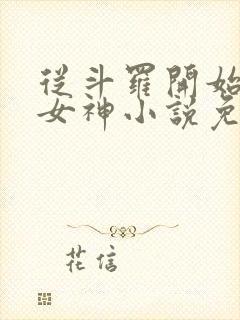 從斗羅開始
女神小說免
花信